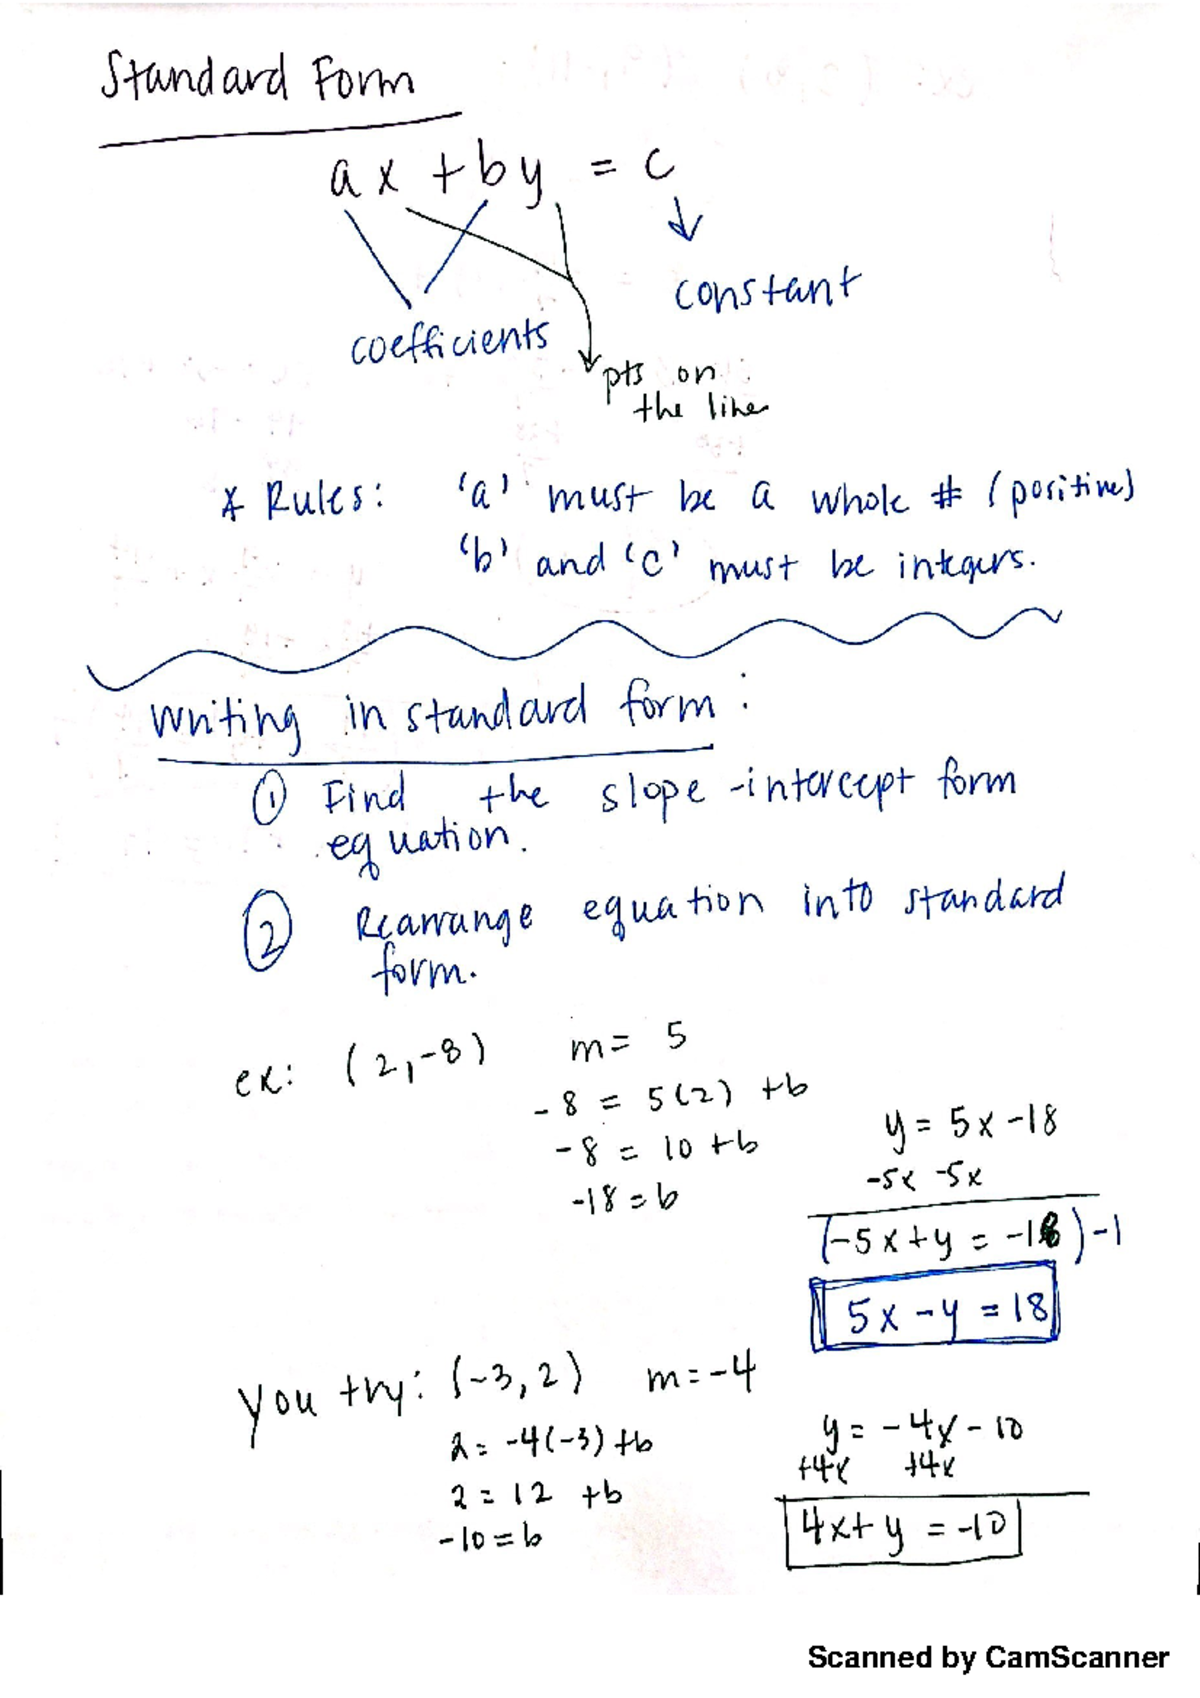 Standard Form
ax + by = c
constant
coefficients
pts on
the line
* Rules: 'a' must be a whole # (positive)
'b' and 'c' must be integers.
Writing in standard form:
① Find the slope-intercept form
equation.
② Rearrange equation into standard
form.
ex: (2,-8) m= 5
-8 = 5(2) +b
-8 = 10 +b
-18 = b
y = 5x -18
-5x -5x
(-5x+y = -18) -1
5x -y = 18
You try: (-3, 2) m=-4
2= -4(-3) +b
2 = 12 +b
-10 = b
y= -4x - 10
+4x +4x
4x+ y = -10
Scanned by CamScanner